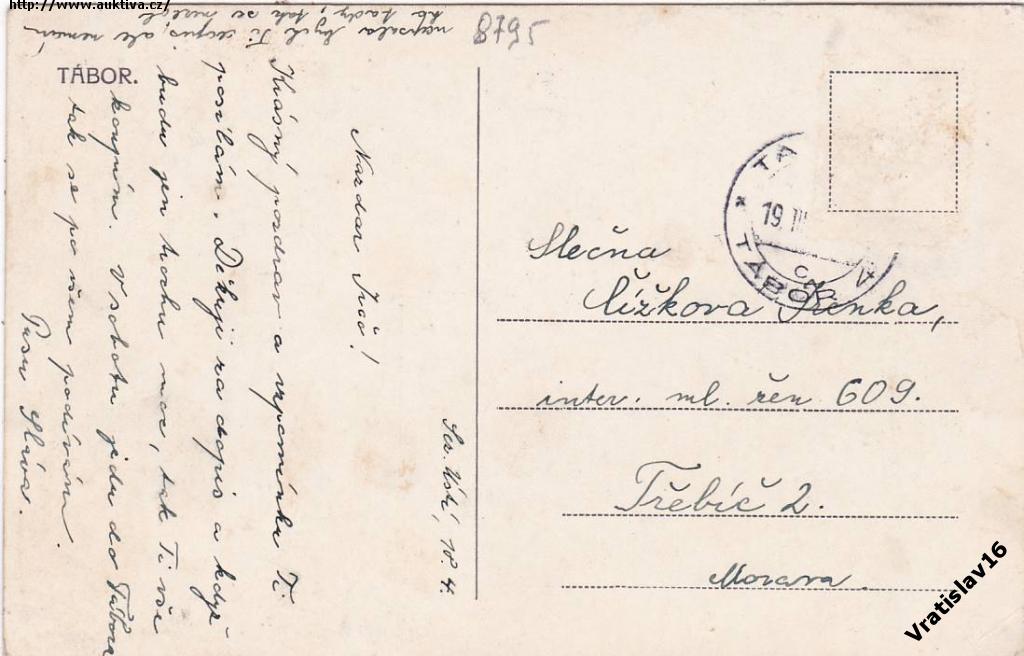 http://www.auktiva.cz/
TÁBOR.
8795
Sez. Ústí, 18. 4.
Nazdar
Krásný pozdrav a vzpomínku Ti
posílám. Děkuji za dopis a když
budu jen trochu moc, tak Ti vše
koupím. V sobotu jedu do Tábora
tak se po všem podívám.
Písu Sláva.
napsala bych Ti cosi, ale nemám
to tady, tak se nezlob
TÁBOR
19. III
ČSR
Slečna
Jenka,
inter. ml. řen 609.
Třebíč 2.
Morava
Vratislav16